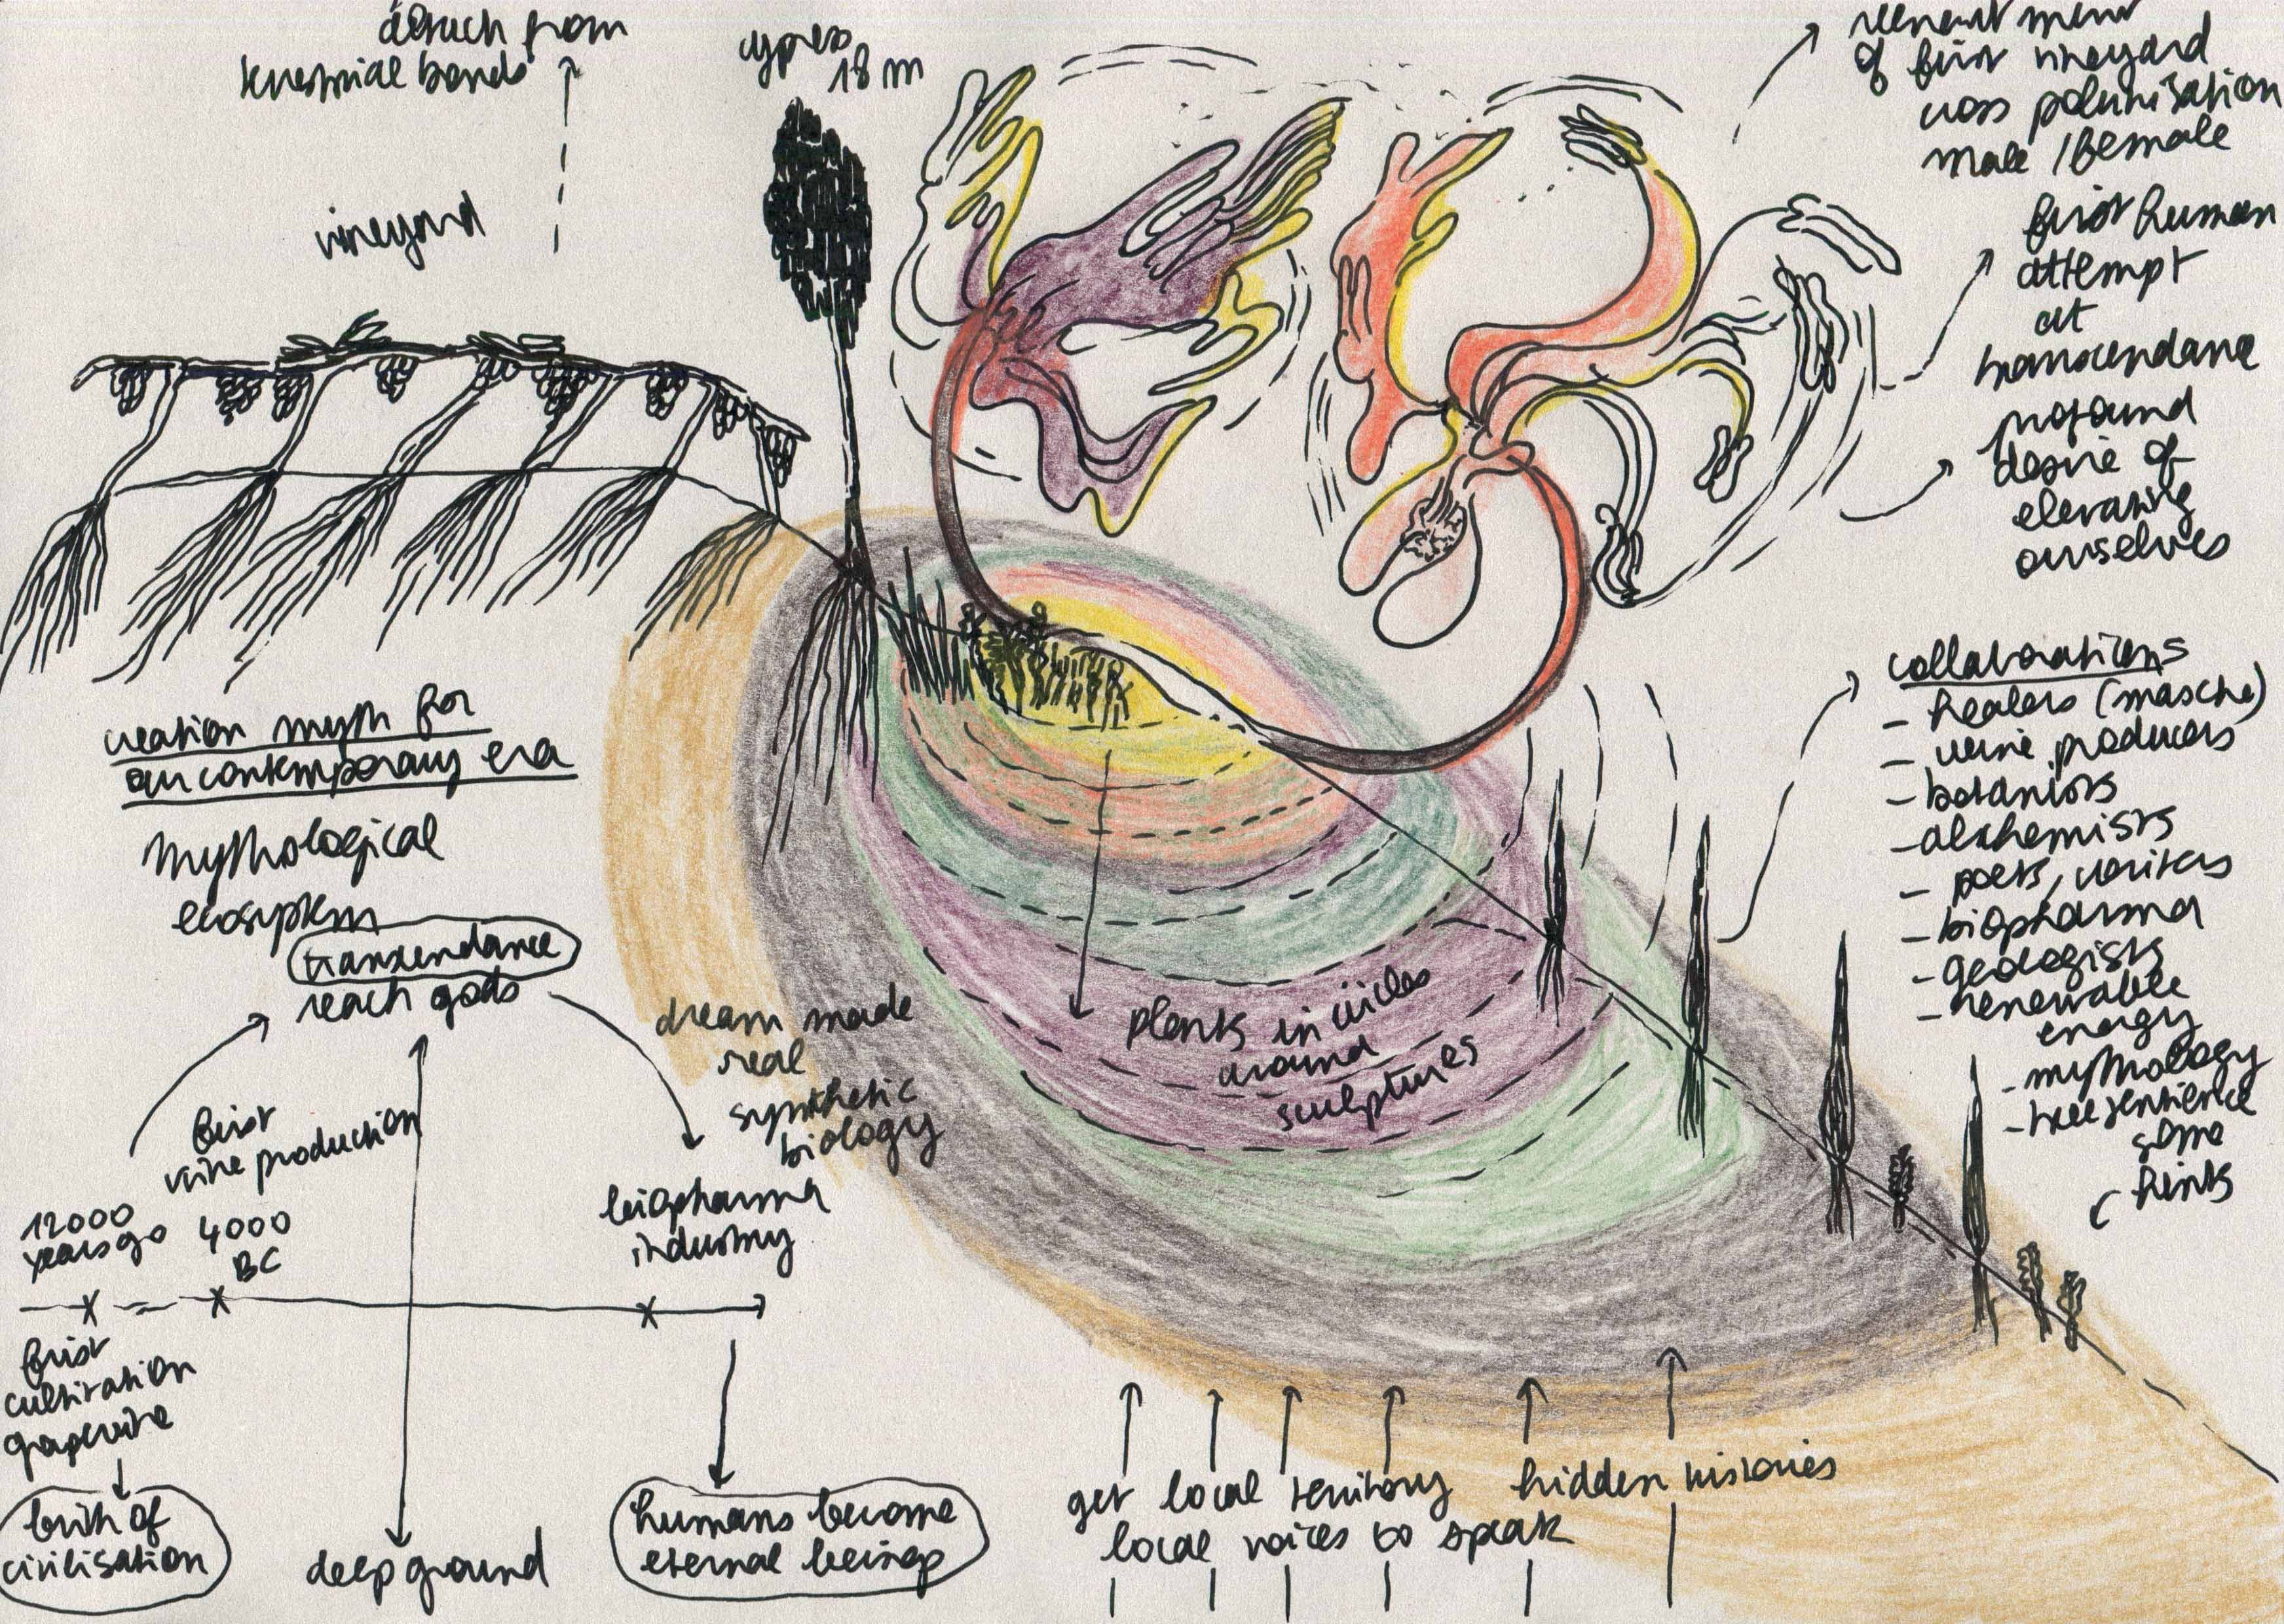 detach from
terrestrial bonds
cypress
18 m
reenactment
of first vineyard
cross polenisation
male / female
vineyard
first human
attempt
at
transcendance
profound
desire of
elevating
ourselves
collaborations
- healers (masche)
- wine producers
- botanists
- alchemists
- poets, writers
- biopharma
- geologists
- renewable
energy
- mythology
- tree sentience
hints
creation myth for
our contemporary era
mythological
ecosystem
transcendance
reach gods
dream made
real
synthetic
biology
plants in circles
around
sculptures
first
wine production
12000
years go
4000
BC
biopharma
industry
first
cultivation
grapevine
birth of
civilisation
deep ground
humans become
eternal beings
get local territory
local voices to speak
hidden histories